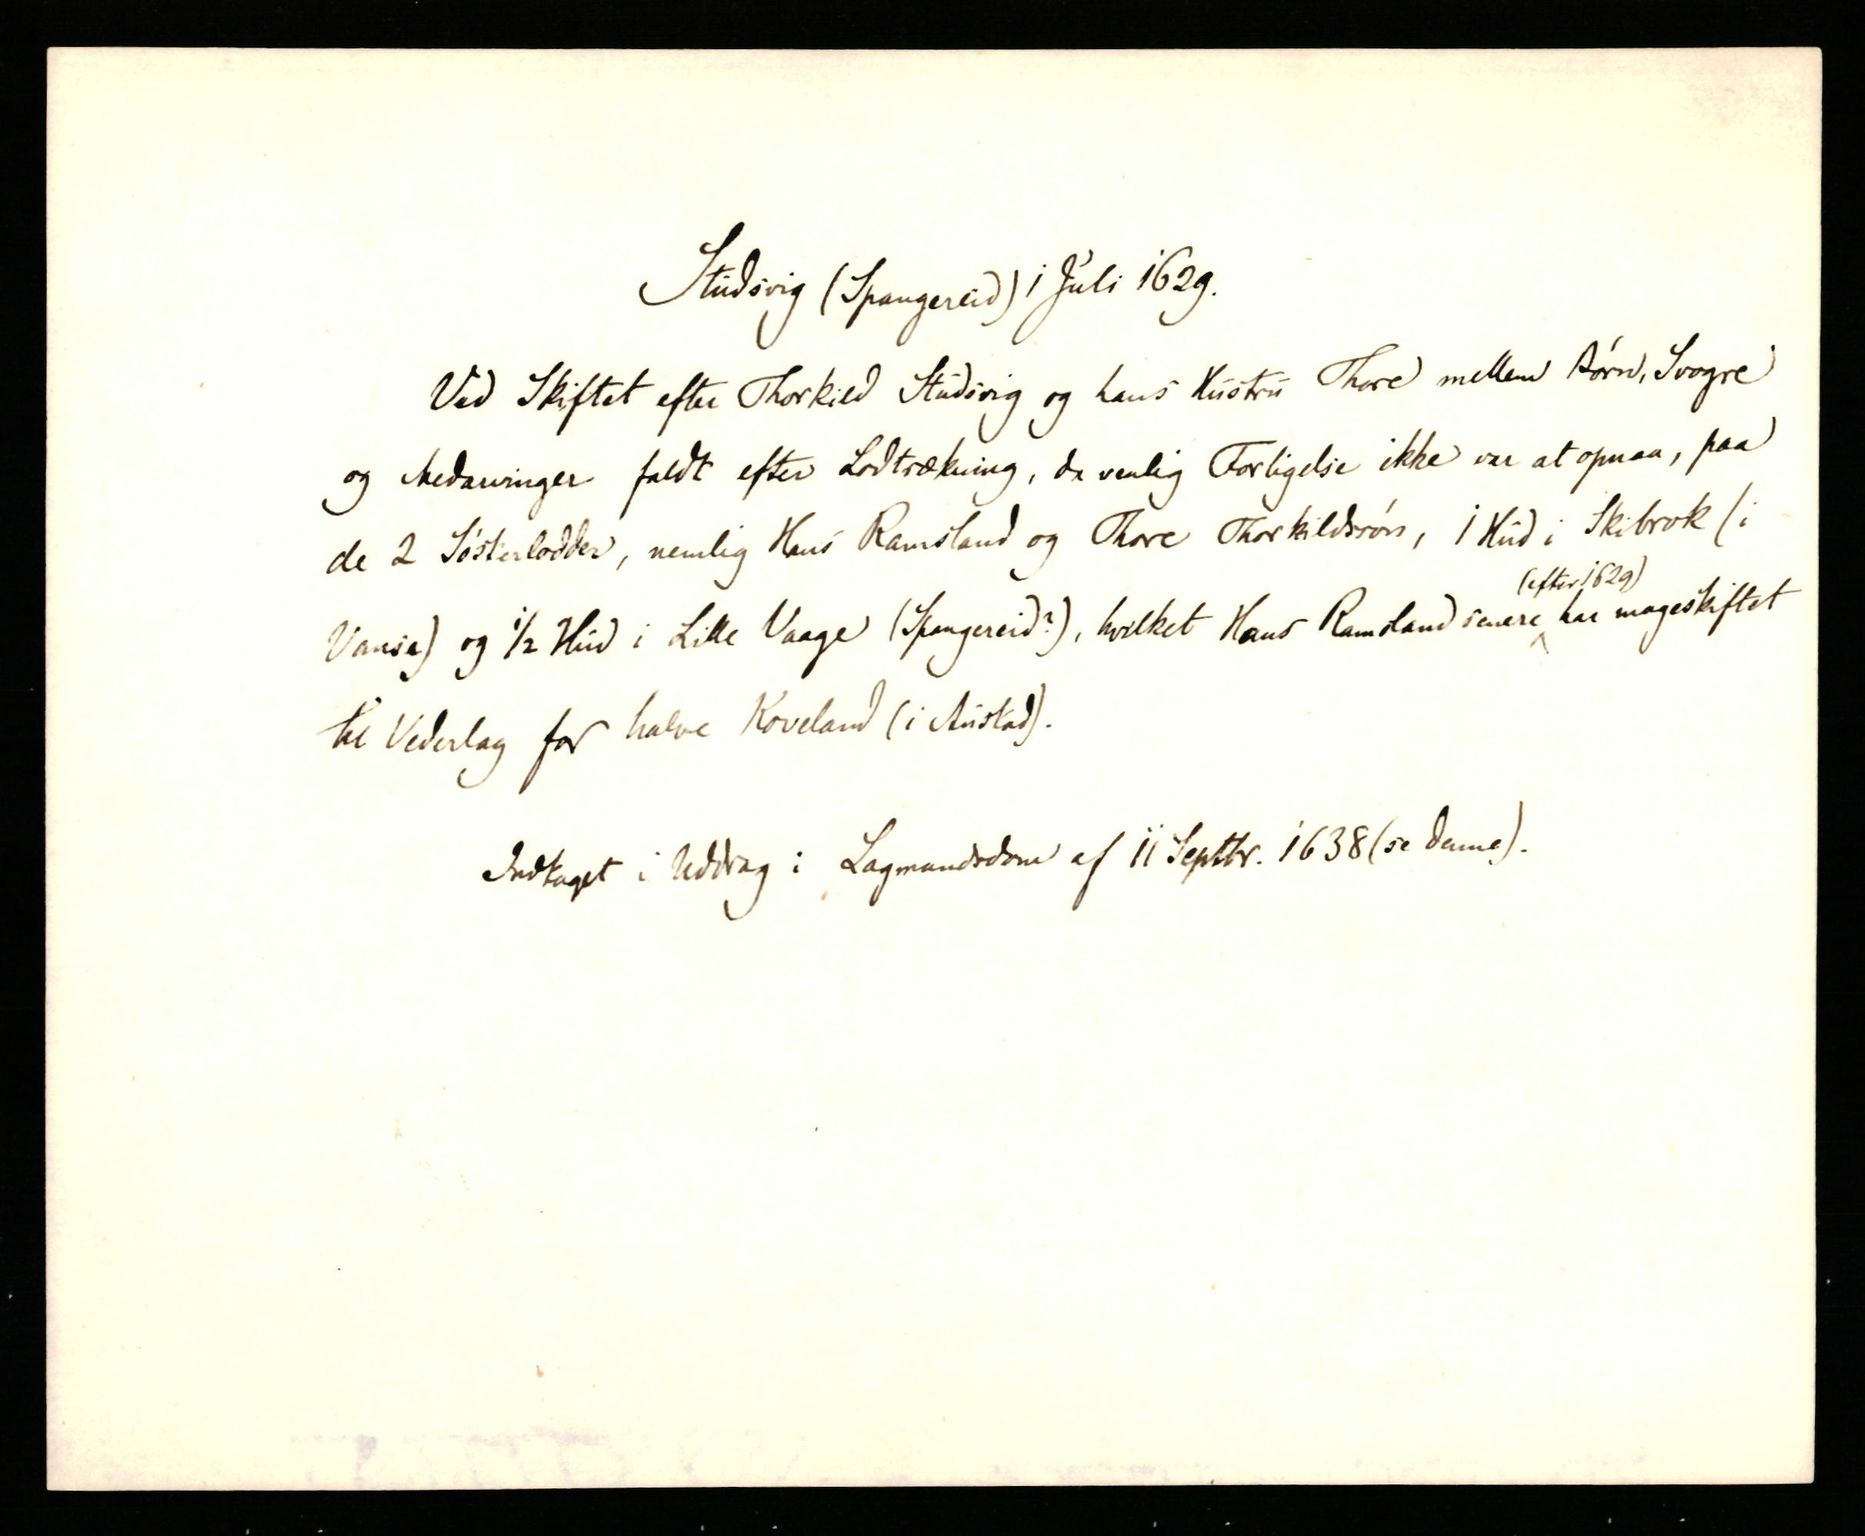 Studsvig (Spangereid) 1 Juli 1629.
Ved Skiftet efter Thorkild Studsvig og hans Hustru Thore mellem Børn, Svogre
og Medarvinger faldt efter Lodtrækning, da venlig Forligelse ikke var at opnaa, paa
de 2 Søsterlodder, nemlig Hans Ramsland og Thore Thorkildsrørs, 1 Hud i Skibrok (i
Vanse) og ½ Hud i Lille Vaage (Spangereid?), hvilket Hans Ramsland senere (efter 1629) har mageskiftet
til Vederlag for halve Koveland (i Austad).
Indtaget i Uddrag i Lagmandsdom af 11 Septbr. 1638 (se denne).